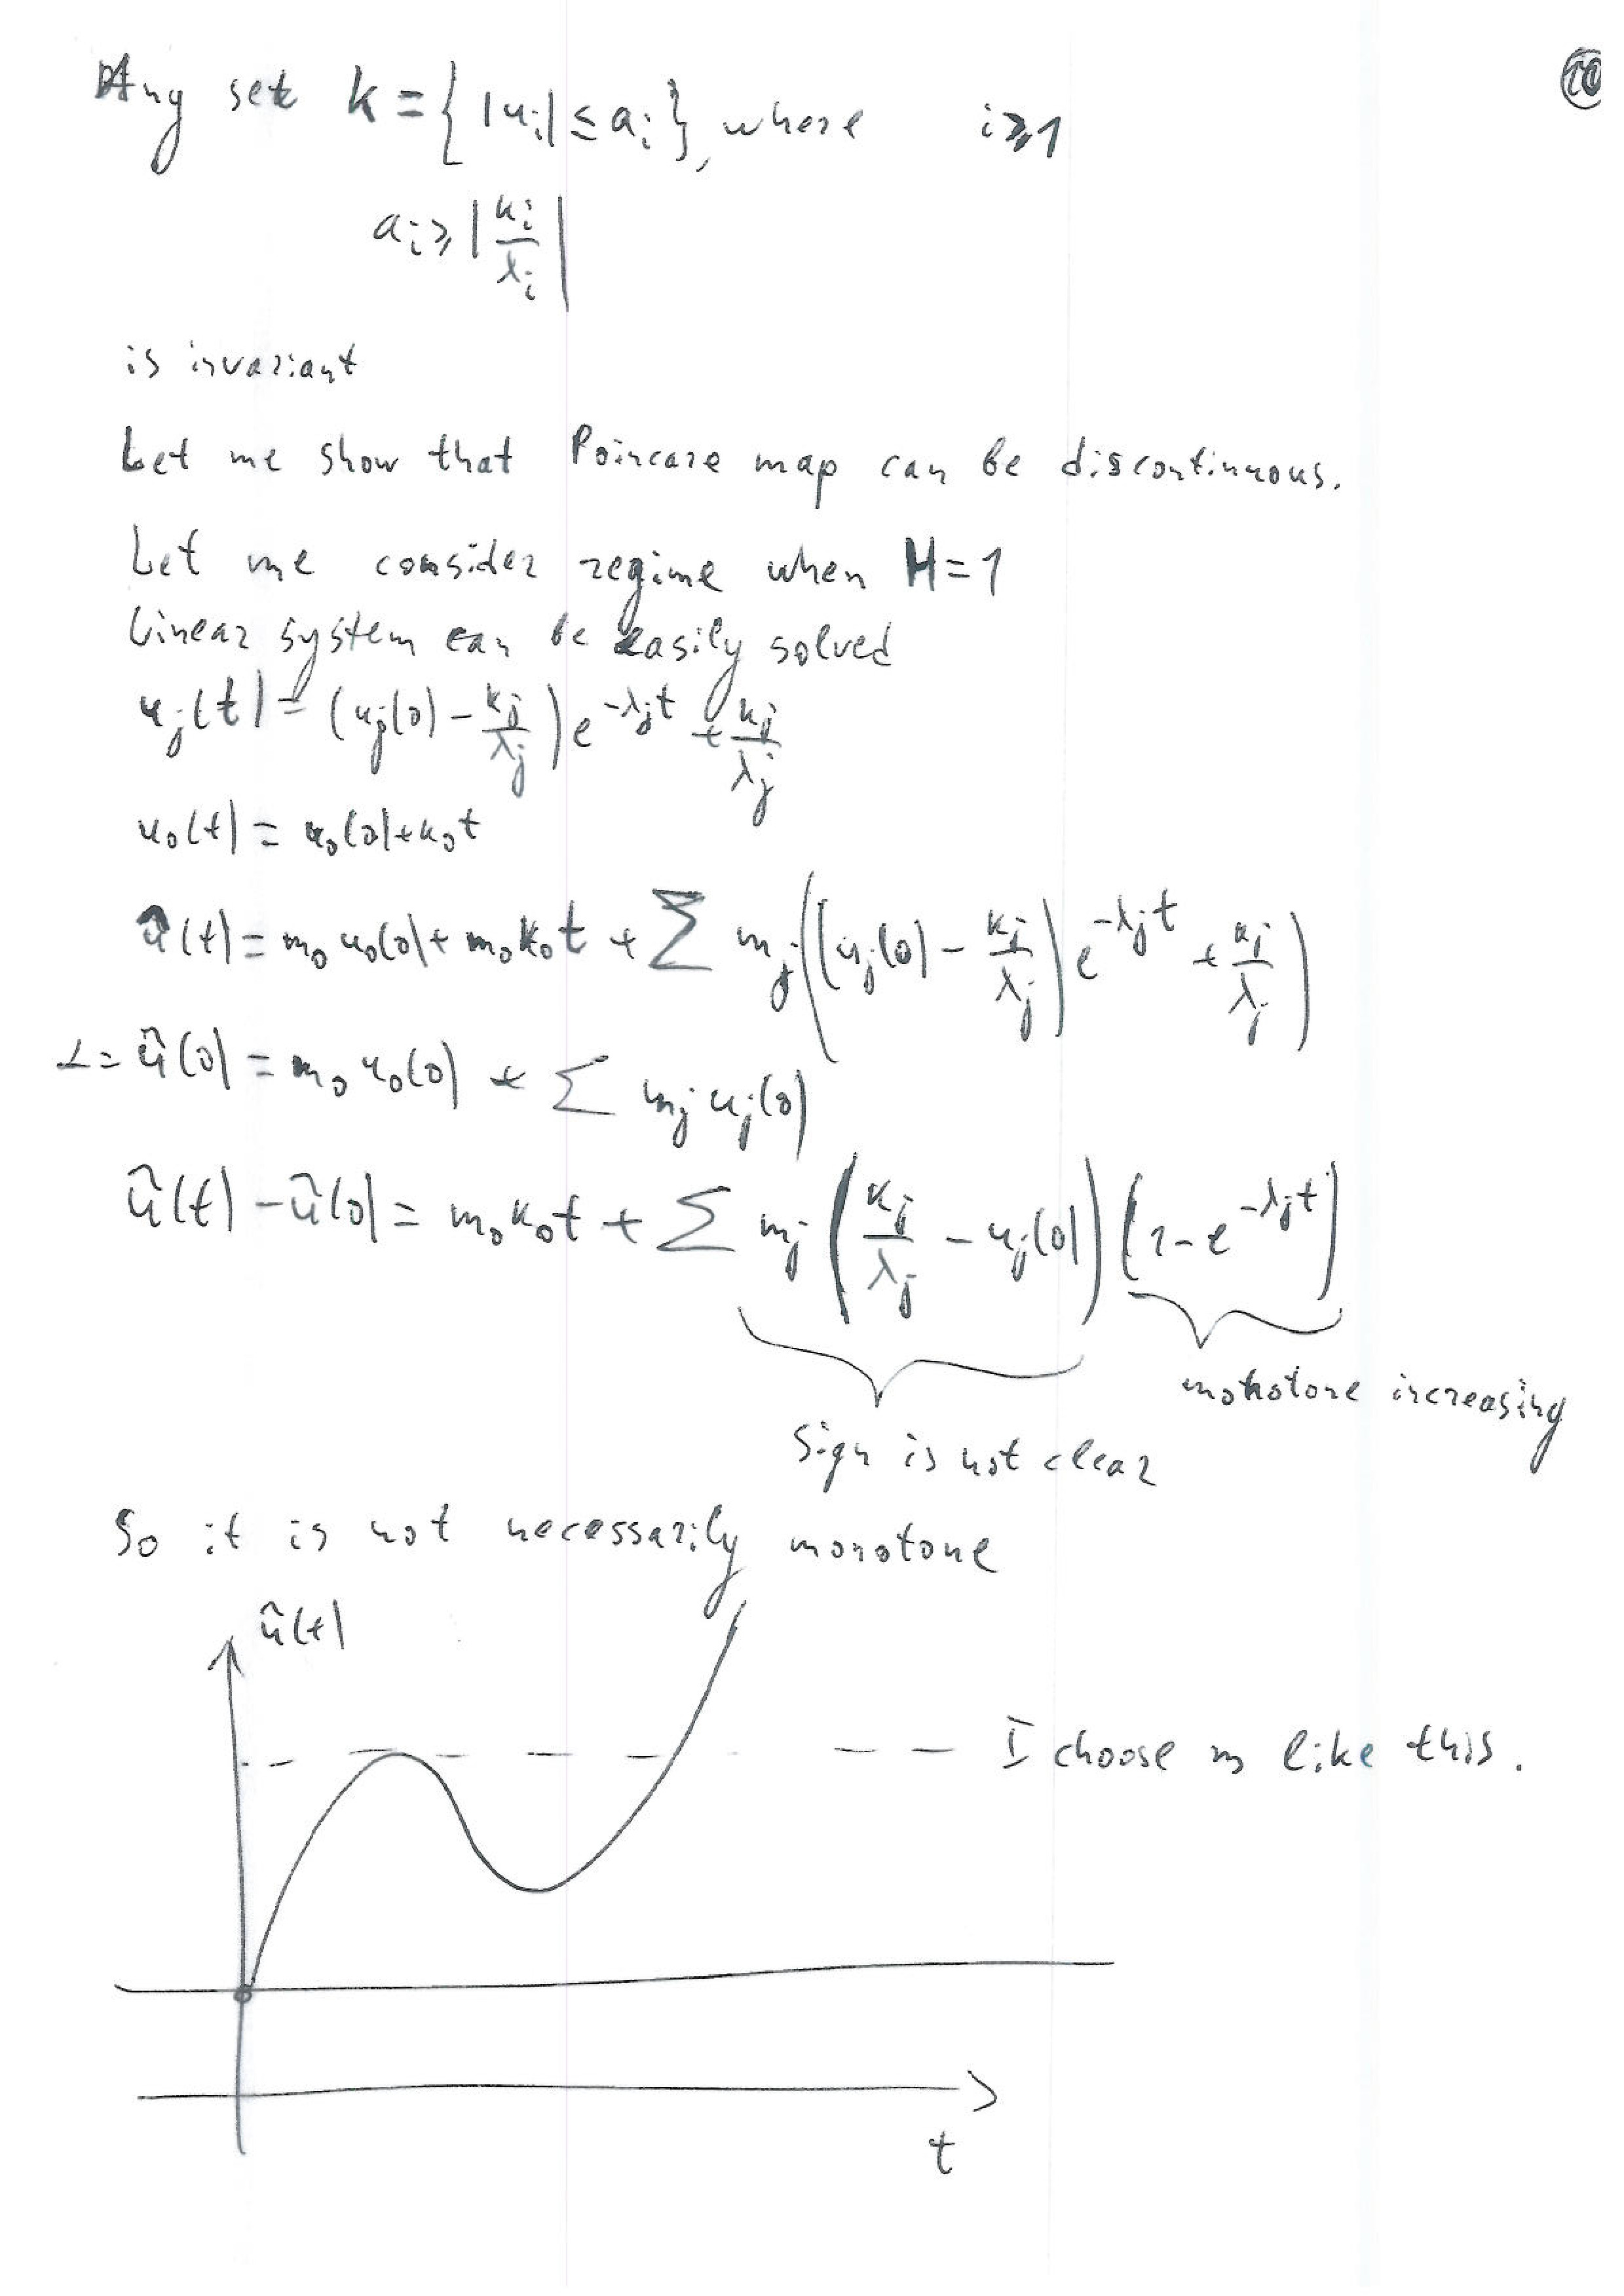 10
Any set K = { |u_i| ≤ a_i }, where i ≥ 1
a_i ≥ | k_i / λ_i |
is invariant
Let me show that Poincare map can be discontinuous.
Let me consider regime when H = 1
Linear system can be easily solved
u_j(t) = (u_j(0) - k_j/λ_j) e^{-λ_j t} + k_j/λ_j
u_0(t) = u_0(0) + k_0 t
û(t) = m_0 u_0(0) + m_0 k_0 t + Σ m_j ((u_j(0) - k_j/λ_j) e^{-λ_j t} + k_j/λ_j)
= û(0) = m_0 u_0(0) + Σ m_j u_j(0)
û(t) - û(0) = m_0 k_0 t + Σ m_j (k_j/λ_j - u_j(0)) (1 - e^{-λ_j t})
monotone increasing
sign is not clear
So it is not necessarily monotone
û(t)
I choose like this.
t